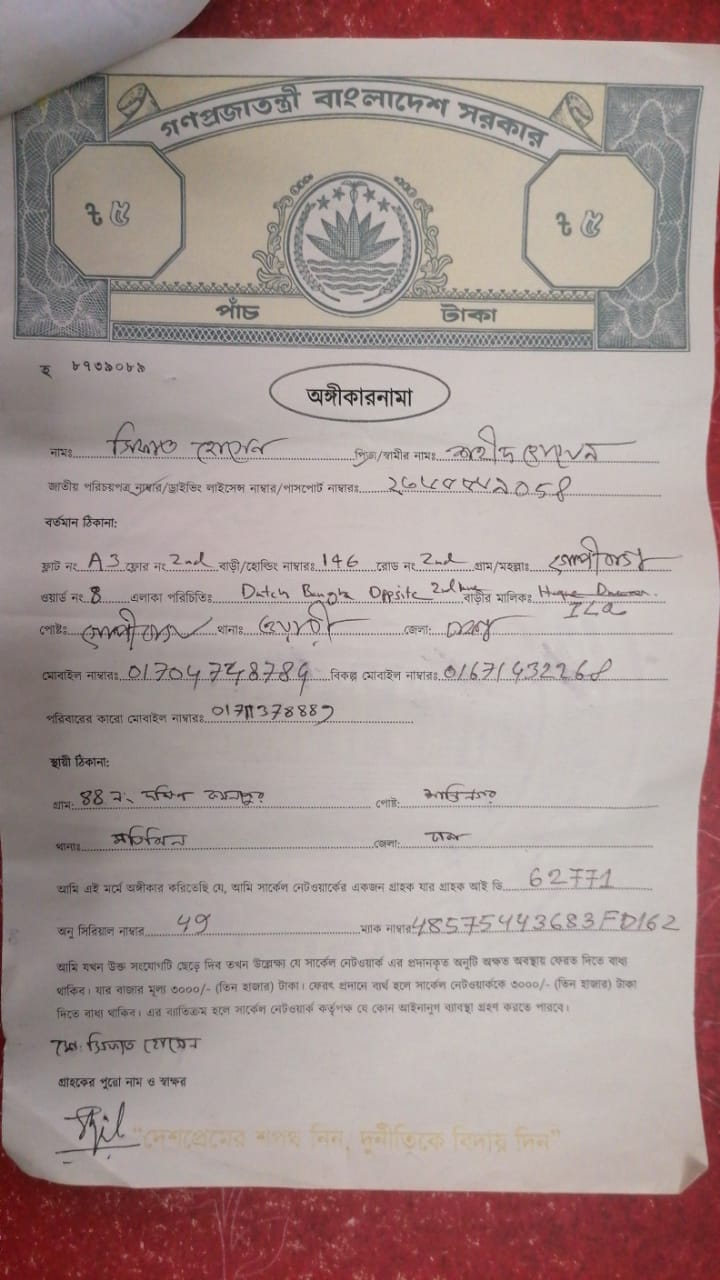 গণপ্রজাতন্ত্রী বাংলাদেশ সরকার
৳ ৫ ৳ ৫
পাঁচ টাকা
হ ৮৭৩৯০৮৯
অঙ্গীকারনামা
নামঃ সিফাত হোসেন পিতা/স্বামীর নামঃ শহীদ হোসেন
জাতীয় পরিচয়পত্র নাম্বার/ড্রাইভিং লাইসেন্স নাম্বার/পাসপোর্ট নাম্বারঃ
বর্তমান ঠিকানা:
ফ্লাট নং A3 ফ্লোর নং 2nd বাড়ী/হোল্ডিং নাম্বারঃ 146 রোড নং 2nd গ্রাম/মহল্লাঃ গোপীবাগ
ওয়ার্ড নং 8 এলাকা পরিচিতিঃ Dutch Bangla Opposite 2nd lane বাড়ীর মালিকঃ
পোষ্টঃ গোপীবাগ থানাঃ ওয়ারী জেলা: ঢাকা
মোবাইল নাম্বারঃ 01704748784 বিকল্প মোবাইল নাম্বারঃ 01671432268
পরিবারের কারো মোবাইল নাম্বারঃ 01711378889
স্থায়ী ঠিকানা:
গ্রাম: 88 নং দক্ষিণ কমলাপুর পোষ্ট: শান্তিনগর
থানাঃ মতিঝিল জেলা: ঢাকা
আমি এই মর্মে অঙ্গীকার করিতেছি যে, আমি সার্কেল নেটওয়ার্কের একজন গ্রাহক যার গ্রাহক আই ডি 62771
অনু সিরিয়াল নাম্বার 49 ম্যাক নাম্বার 48575443683FD162
আমি যখন উক্ত সংযোগটি ছেড়ে দিব তখন উল্লেক্ষ্য যে সার্কেল নেটওয়ার্ক এর প্রদানকৃত অনুটি অক্ষত অবস্থায় ফেরত দিতে বাধ্য
থাকিব। যার বাজার মূল্য ৩০০০/- (তিন হাজার) টাকা। ফেরৎ প্রদানে ব্যর্থ হলে সার্কেল নেটওয়ার্ককে ৩০০০/- (তিন হাজার) টাকা
দিতে বাধ্য থাকিব। এর ব্যতিক্রম হলে সার্কেল নেটওয়ার্ক কর্তৃপক্ষ যে কোন আইনানুগ ব্যবস্থা গ্রহণ করতে পারবে।
মোঃ সিফাত হোসেন
গ্রাহকের পুরো নাম ও স্বাক্ষর
"দেশপ্রেমের শপথ নিন, দুর্নীতিকে বিদায় দিন"